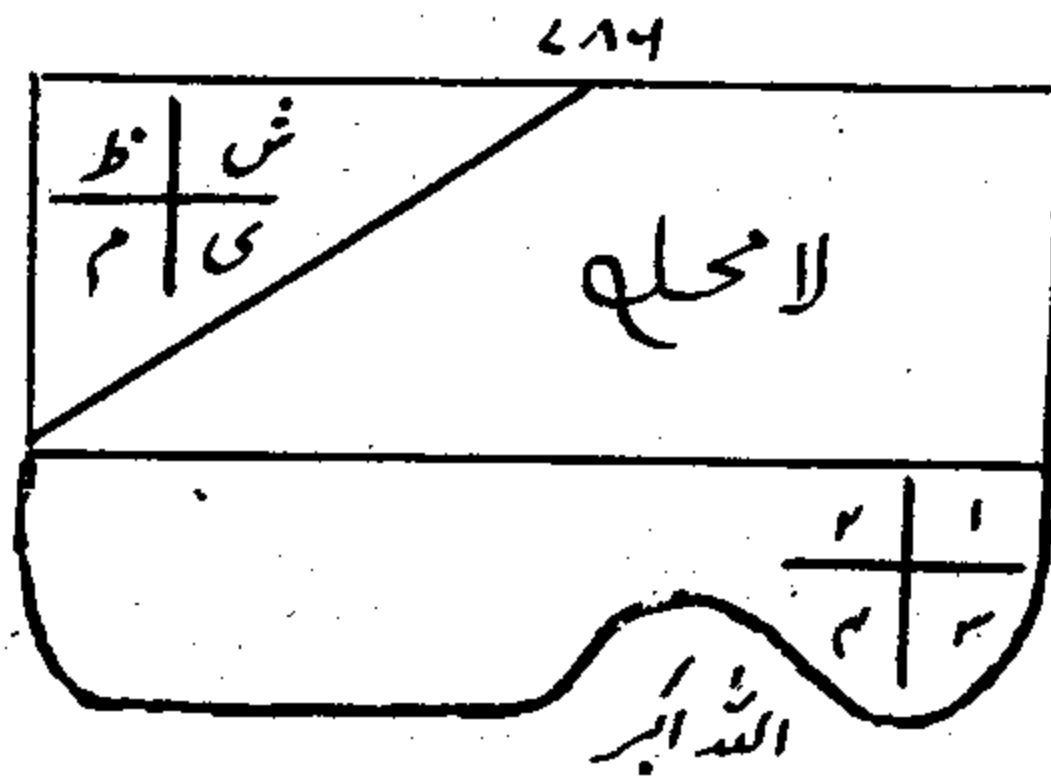 ۷۸۶
ش ظ
ی م
لا
۱ ۲
۳ ۴
اللہ اکبر